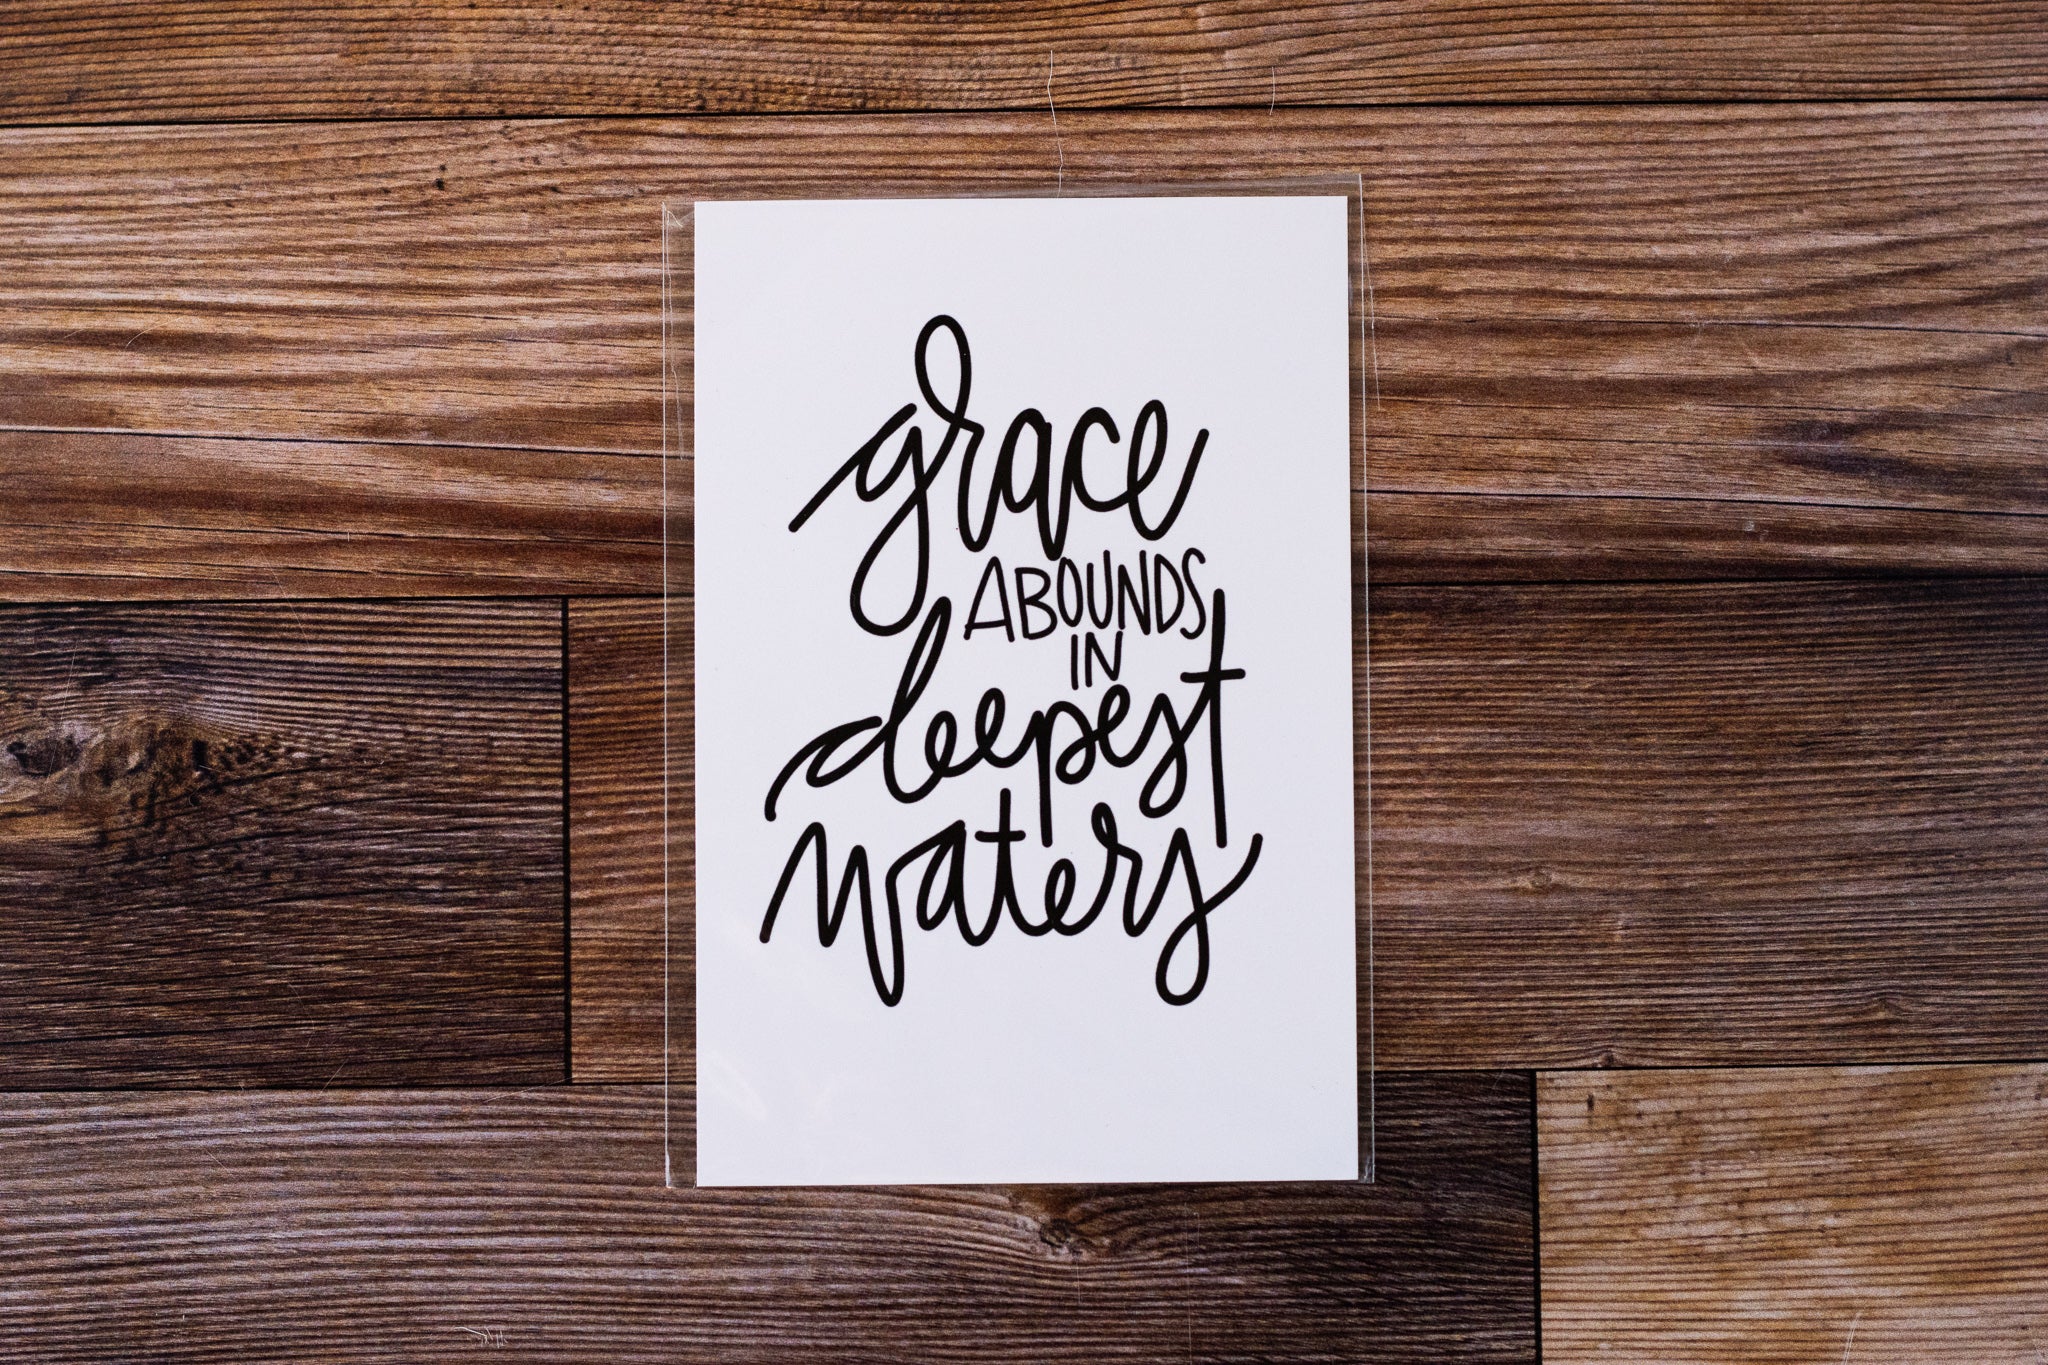 grace
ABOUNDS
IN
deepest
waters